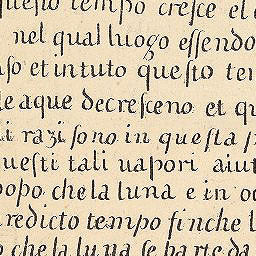 questo tempo cresce el
nel qual luogo essendo
et in tuto questo
aque decrescono et
razi sono in questa
questi tali uapori
che la luna e in
redicto tempo finche
che la luna se parte da